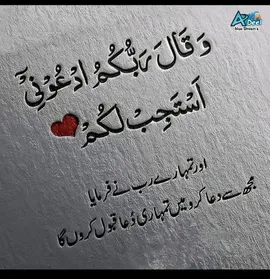 وَقَالَ رَبُّكُمُ ادْعُوْنِیْۤ
اَسْتَجِبْ لَكُمْ
اور تمہارے رب نے فرمایا
مجھ سے دعا کرو میں تمہاری دُعا قبول کروں گا